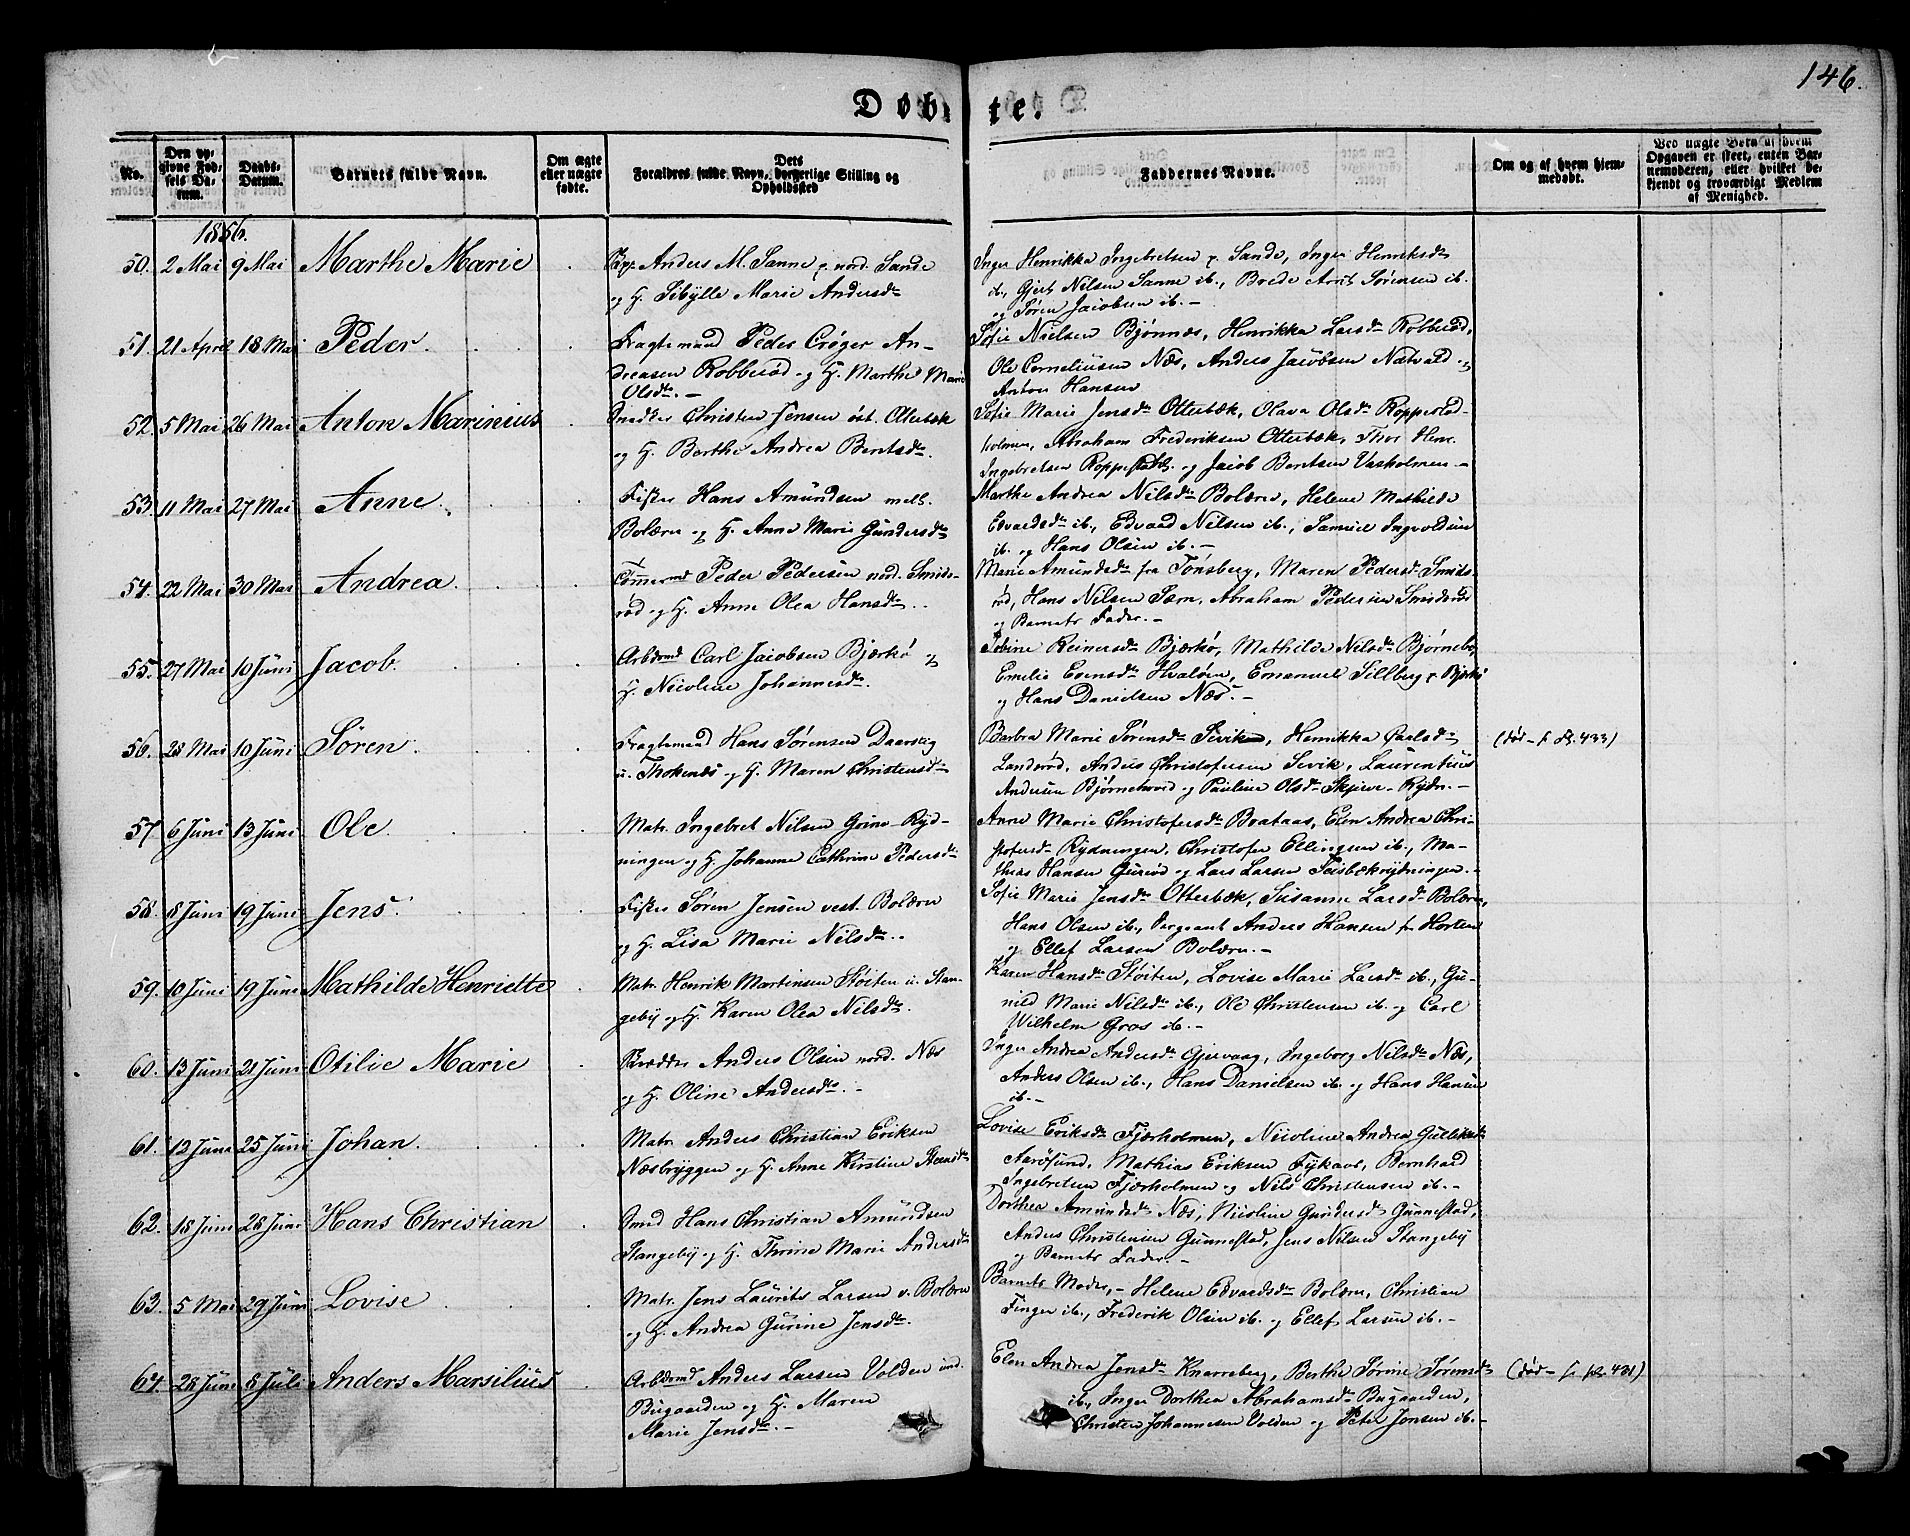 146.
Døbte.
No.
Den opgivne Fødsels Datum.
Daabs-Datum.
Barnets fulde Navn.
Om ægte eller uægte fødte.
Dets Forældres fulde Navn, borgerlige Stilling og Opholdssted
Faddernes Navne.
Om og af hvem hjemmedøbt.
Ved uægte Børn af hvem Opgaven er skeet, enten Barnemoderen, eller hvilket bekjendt og troværdigt Medlem af Menighed.
1856.
50. 2 Mai 9 Mai Marthe Marie
Anders M. Sanne p. nord. Sande
og H. Sibylle Marie Andersdtr
Inger Henrikka Ingebretsen p. Sande, Inger Henriksdtr
ib., Gjert Nilsen Sanne ib., Brede Arnt Sørensen ib.
og Søren Jacobsen ib. —
51. 21 April 18 Mai Peder.
Fragtemand Peder Crøger An-
dreasen Robberød og H. Marthe Marie
Olsdtr. —
Sofie Nielsen Bjønnæs, Henrikka Larsdtr Robberød,
Ole Corneliusen Næs, Anders Jacobsen Natvald og
Anton Hansen
52. 5 Mai 26 Mai Anton Marinius
Snedker Christen Jensen øst. Otterbæk
og H. Berthe Andrea Bentsdtr.
Sofie Marie Jensdtr Otterbæk, Olava Olsdtr Roppestad-
holmen, Abraham Frederiksen Otterbæk, Thor Henr.
Ingebretsen Roppestadh. og Jacob Bentsen Vasholmen —
53. 11 Mai 27 Mai Anne.
Fisker Hans Amundsen mell.
Bolærn og H. Anne Marie Gundersdtr
Marthe Andrea Nilsdtr Bolærn, Helene Mathilde
Edvardsdtr ib., Edvard Nilsen ib., Samuel Ingvoldsen
ib. og Hans Olsen ib. —
54. 22 Mai 30 Mai Andrea.
Tømmermd Peder Pedersen nord. Smids-
rød og H. Anne Olea Hansdtr..
Marie Amundsdtr fra Tønsberg, Maren Pedersdtr Smids-
rød, Hans Nilsen Søen, Abraham Pedersen Smidsrød
og Barnets Fader. —
55. 27 Mai 10 Juni Jacob.
Arbdsmd Carl Jacobsen Bjærkø og
H. Nicoline Johannesdtr.
Tobine Reinersdtr Bjærkø, Mathilde Nilsdtr Bjørnebo,
Emelie Evensdtr Hvaløen, Emanuel Sillberg p. Bjerkø
og Hans Danielsen Næs. —
56. 28 Mai 10 Juni Søren.
Fragtemand Hans Sørensen Daarslig
u. Thokenæs og H. Maren Christensdtr
Barbra Marie Sørensdtr Seviken, Henrikka Carlsdtr
Landerød, Anders Christofersen Sevik, Laurentius
Andersen Bjørnebærød og Pauline Olsdtr Skjerve-Rydn. —
(død – f. pk. 433)
57. 6 Juni 13 Juni Ole.
Matr. Ingebret Nilsen Grine-Ryd-
ningen og H. Johanne Cathrine Pedersdtr
Anne Marie Christofersdtr Brataas, Elen Andrea Chri-
stofersdtr Rydningen, Christofer Ellingsen ib., Ma-
thias Hansen Gurød og Lars Larsen Teisbækrydningen. —
58. 8 Juni 19 Juni Jens.
Fisker Søren Jensen vest. Bolærn
og H. Lisa Marie Nilsdtr..
Sofie Marie Jensdtr Otterbæk, Susanne Larsdtr Bolærn,
Hans Olsen ib., Sergeant Anders Hansen fr. Horten
og Ellef Larsen Bolærn. —
59. 10 Juni 19 Juni Mathilde Henriette
Matr. Henrik Martinsen Støiten u. Stan-
geby og H. Karen Olea Nilsdtr.
Karen Hansdtr Støiten, Lovise Marie Larsdtr ib., Gu-
nild Marie Nilsdtr ib., Ole Christensen ib. og Carl
Wilhelm Gros ib. —
60. 13 Juni 21 Juni Otilie Marie
Skrædder Anders Olsen nord. Næs
og H. Oline Andersdtr. —
Inger Andrea Andersdtr Gjervaag, Ingeborg Nilsdtr Næs,
Anders Olsen ib., Hans Danielsen ib. og Hans Hansen
ib. —
61. 12 Juni 25 Juni Johan.
Matr. Anders Christian Eriksen
Næsbryggen og H. Anne Kirstine Steensdtr
Lovise Eriksdtr Fjærholmen, Nicoline Andrea Gulliksdtr
Aarøsund, Mathias Eriksen Fykaas, Bernhard
Ingebretsen Fjærholmen og Nils Christensen ib. —
62. 18 Juni 28 Juni Hans Christian
Smed Hans Christian Amundsen
Stangeby og H. Thrine Marie Andersdtr
Dorthea Amundsdtr Næs, Nicoline Gundersdtr Gunnestad,
Anders Christensen Gunnestad, Jens Nilsen Stangeby
og Barnets Fader. —
63. 5 Mai 29 Juni Lovise
Matr. Jens Laurits Larsen v. Bolærn
og H. Andrea Gurine Jensdtr.
Barnets Moder, – Helene Edvardsdtr Bolærn, Christian
Finger ib., Frederik Olsen ib. og Ellef Larsen ib. —
64. 28 Juni 8 Juli Anders Marsilius
Arbdsmd Anders Larsen Volden und.
Bugaarden og H. Maren
Marie Jensdtr. —
Elen Andrea Jensdtr Knarreberg, Berthe Sørine Sørensdtr
ib., Inger Dorthea Abrahamsdtr Bugaarden,
Christen Johannesen Volden og Peter Jensen ib. —
(død – f. pk. 431)